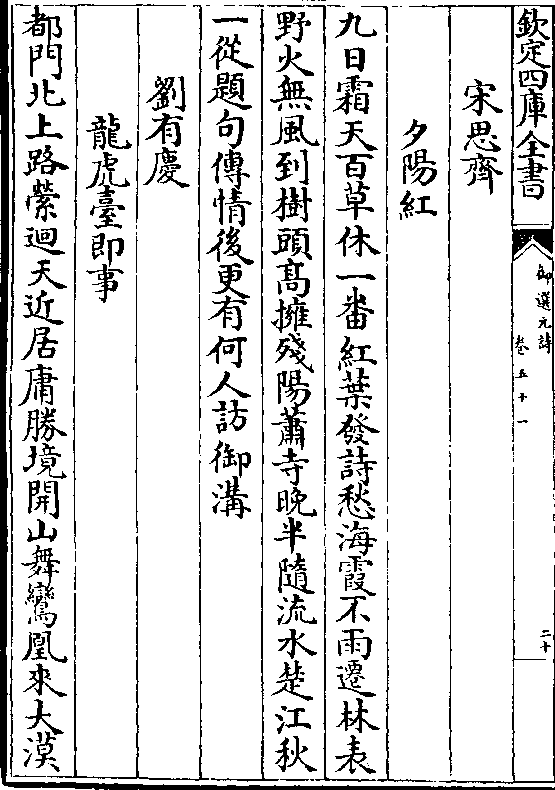 欽定四庫全書
御選元詩
卷五十一
二十
宋思齊
夕陽紅
九日霜天百草休一番紅葉發詩愁海霞不雨遷林表
野火無風到樹頭髙擁殘陽蕭寺晚半隨流水楚江秋
一從題句傳情後更有何人訪御溝
劉有慶
龍虎臺即事
都門北上路縈迴天近居庸勝境開山舞鸞凰來大漠